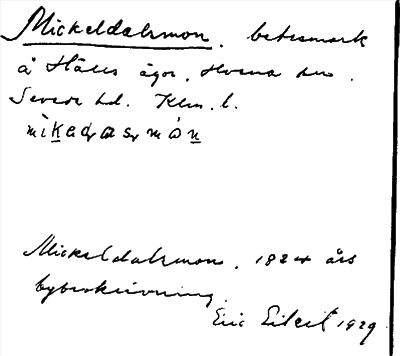 Mickeldalsmon. betesmark
å Hälls ägor, Hvena sn.
Sevede hd. Klm. l.
Mickeldalsmon. 1824 års
bybeskrivning.
Eric Elleit 1929